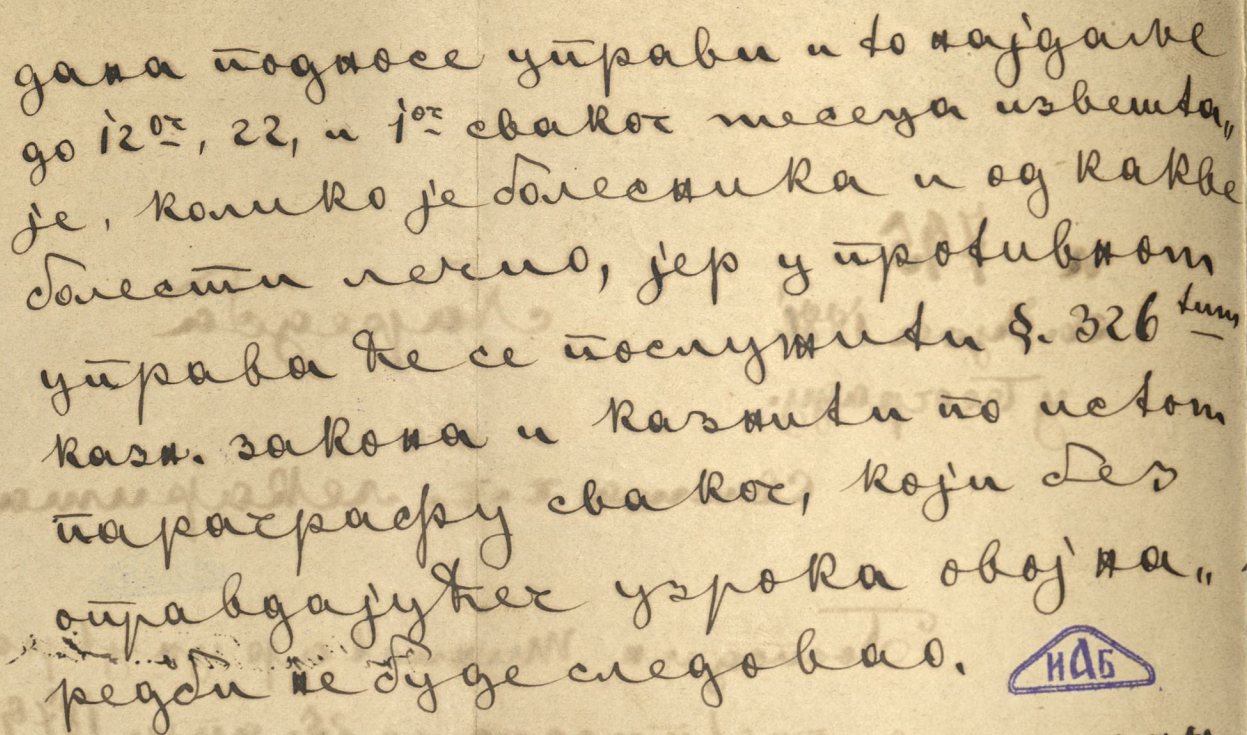 дана подносе управи и то најдаље
до 12ог, 22, и 1ог сваког месеца извешта„
је, колико је болесника и од какве
болести лечио, јер у противном
управа ће се послужити §. 326 тим
казн. закона и казнити по истом
параграфу сваког, који без
оправдајућег узрока овој на„
редби не буде следовао.
ИАБ